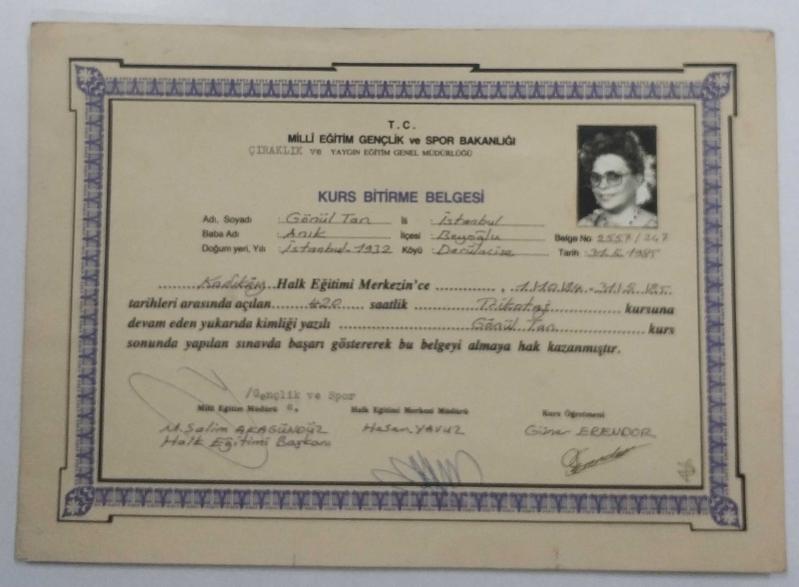 T.C.
MİLLÎ EĞİTİM GENÇLİK ve SPOR BAKANLIĞI
ÇIRAKLIK ve YAYGIN EĞİTİM GENEL MÜDÜRLÜĞÜ
KURS BİTİRME BELGESİ
Adı, Soyadı : Gönül Tan İli : İstanbul
Baba Adı : Anık İlçesi : Beyoğlu Belge No 2557/247
Doğum yeri, Yılı : İstanbul-1932 Köyü : Tarih : 31.5.1985
Kadıköy Halk Eğitimi Merkezin'ce , 1.10.84-31.5.85
tarihleri arasında açılan 420 saatlik kursuna
devam eden yukarıda kimliği yazılı Gönül Tan kurs
sonunda yapılan sınavda başarı göstererek bu belgeyi almaya hak kazanmıştır.
/Gençlik ve Spor
Milli Eğitim Müdürü Halk Eğitimi Merkezi Müdürü Kurs Öğretmeni
M. Salim AKAGÜNDÜZ Hasan YAVUZ Güner ERENDOR
Halk Eğitimi Başkanı